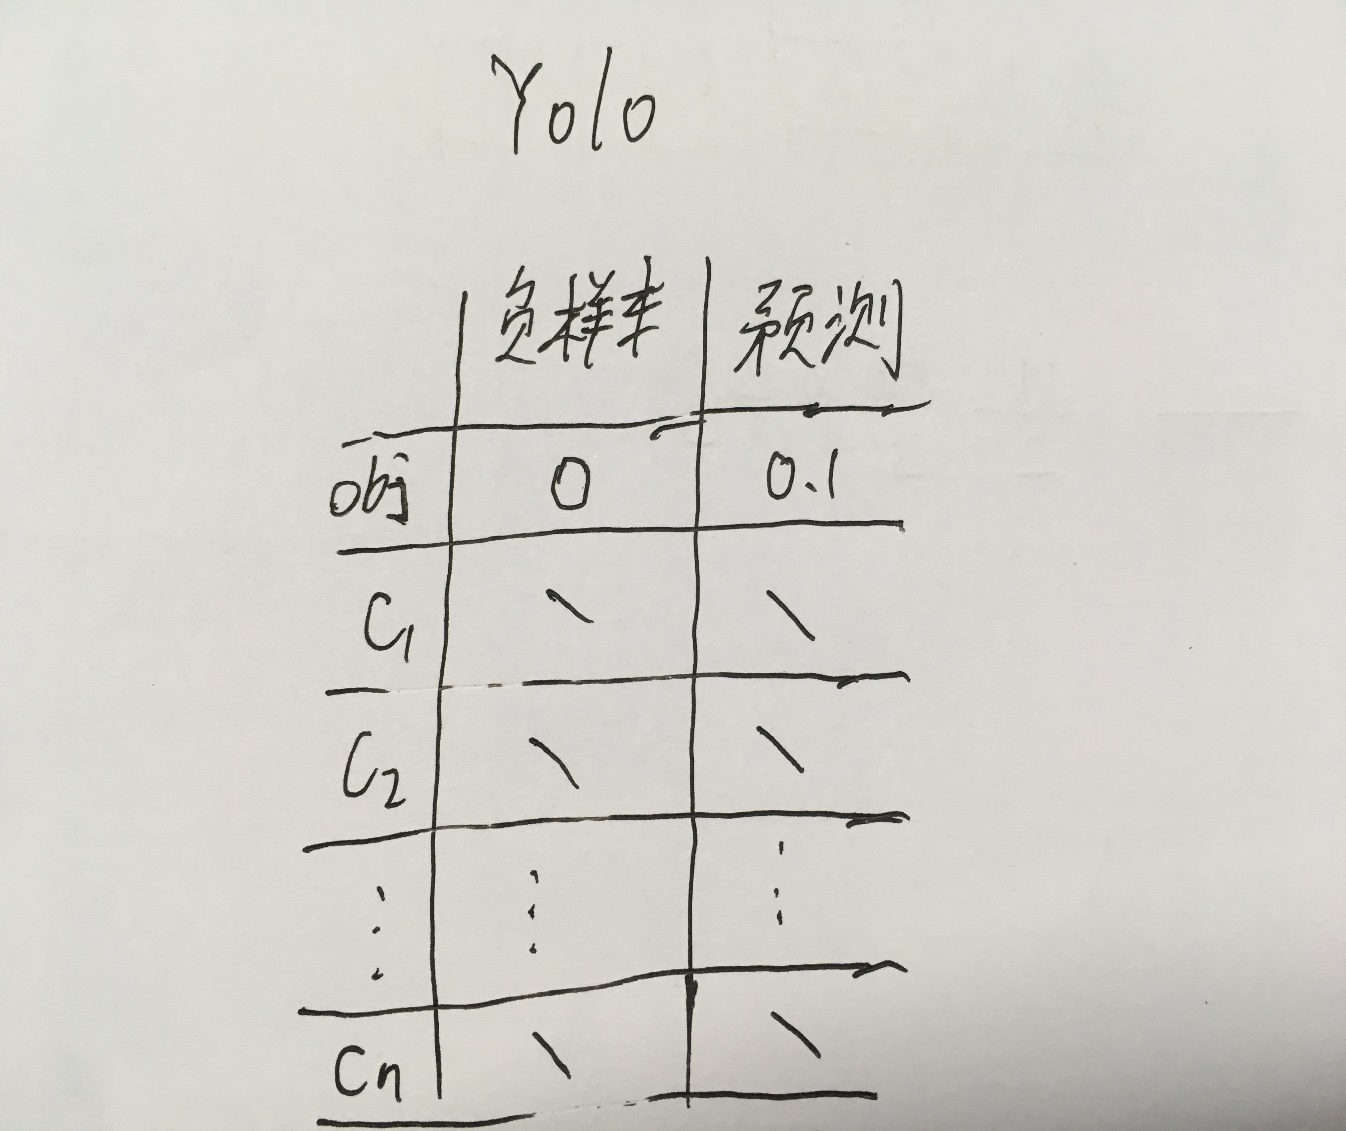 Yolo
负样本 预测
obj 0 0.1
C1 \ \
C2 \ \
⋮ ⋮ ⋮
Cn \ \